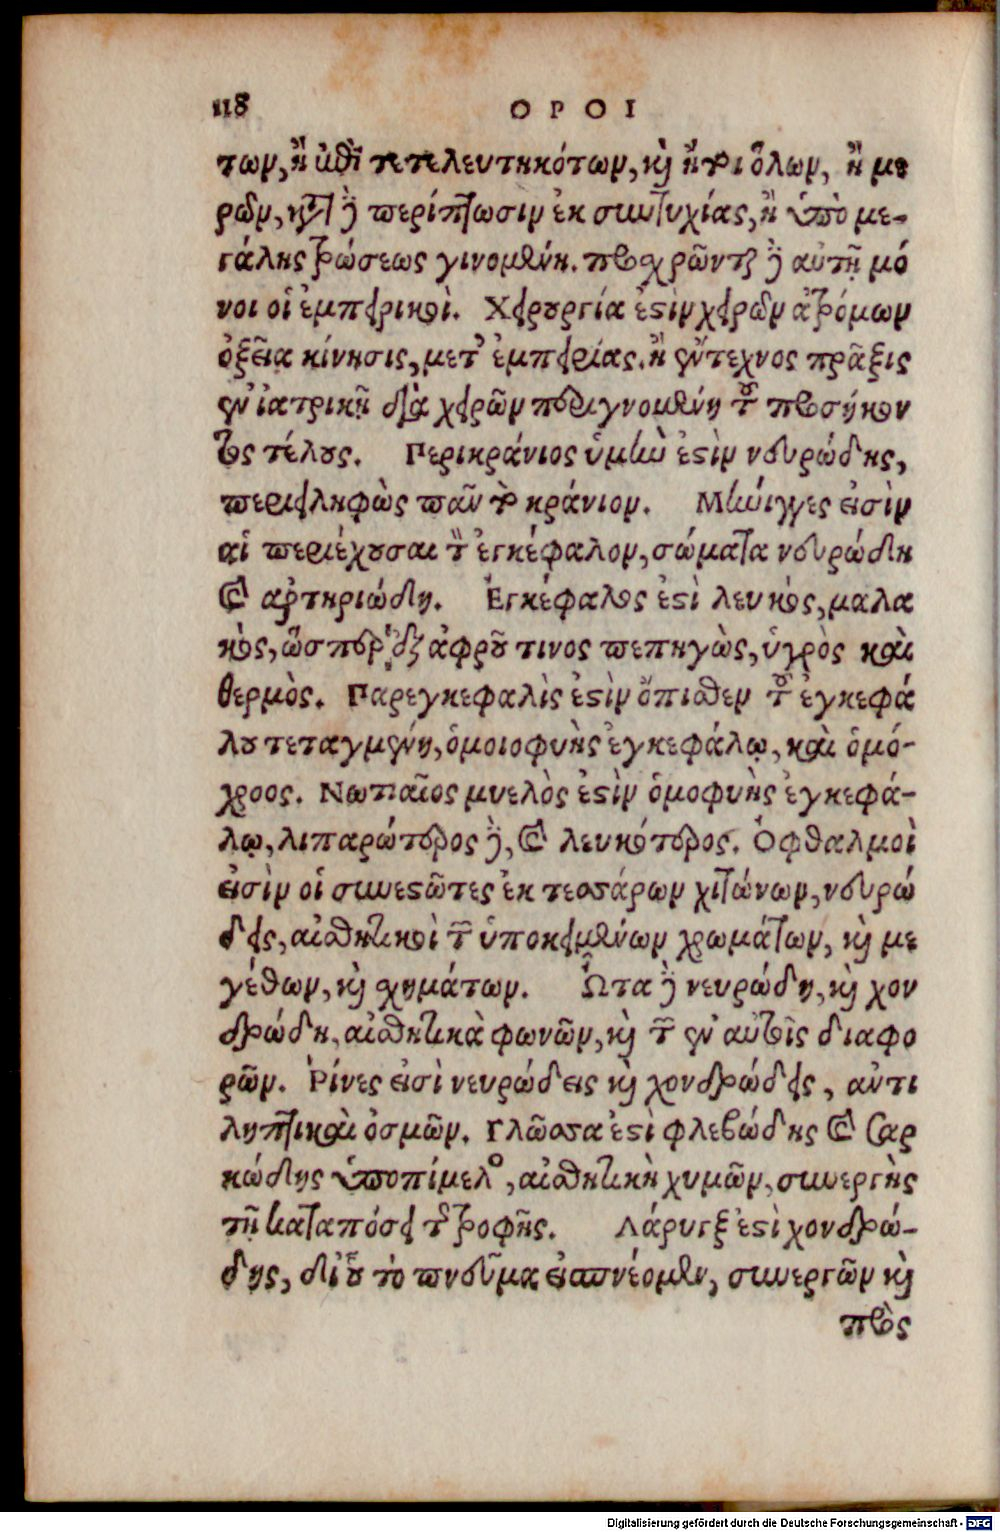 118 ΟΡΟΙ
των, ἢ ἐπὶ τετελευτηκότων, καὶ ἤτοι ὅλων, ἢ με
ρῶν, κατὰ δὲ περίπτωσιν ἐκ συντυχίας, ἢ ὑπὸ με-
γάλης τρώσεως γινομένη. προσχρῶνται δὲ αὐτῇ μό
νοι οἱ ἐμπειρικοὶ. Χειρουργία ἐστὶν χειρῶν ἀτρόμων
ὀξεῖα κίνησις, μετ᾽ ἐμπειρίας. ἢ ἔντεχνος πρᾶξις
ἐν ἰατρικῇ διὰ χειρῶν περιγινομένη τοῦ προσήκον
τος τέλους. Περικράνιος ὑμὴν ἐστὶν νευρώδης,
περιειληφὼς πᾶν τὸ κράνιον. Μήνιγγες εἰσὶν
αἱ περιέχουσαι τὸν ἐγκέφαλον, σώματα νευρώδη
καὶ ἀρτηριώδη. Ἐγκέφαλος ἐστὶ λευκὸς, μαλα
κὸς, ὥσπερ ἐξ ἀφροῦ τινος πεπηγὼς, ὑγρὸς καὶ
θερμὸς. Παρεγκεφαλὶς ἐστὶν ὄπισθεν τοῦ ἐγκεφά
λου τεταγμένη, ὁμοιοφυὴς ἐγκεφάλῳ, καὶ ὁμό-
χροος. Νωτιαῖος μυελὸς ἐστὶν ὁμοφυὴς ἐγκεφά-
λῳ, λιπαρώτερος δὲ, καὶ λευκότερος. Ὀφθαλμοὶ
εἰσὶν οἱ συνεστῶτες ἐκ τεσσάρων χιτώνων, νευρώ
δεις, αἰσθητικοὶ τῶν ὑποκειμένων χρωμάτων, καὶ με
γέθων, καὶ σχημάτων. Ὦτα δὲ νευρώδη, καὶ χον
δρώδη, αἰσθητικὰ φωνῶν, καὶ τῶν ἐν αὐτοῖς διαφο
ρῶν. Ῥίνες εἰσὶ νευρώδεις καὶ χονδρώδεις, ἀντι
ληπτικαὶ ὀσμῶν. Γλῶσσα ἐστὶ φλεβώδης καὶ σαρ
κώδης ὑποπίμελος, αἰσθητικὴ χυμῶν, συνεργὴς
τῇ καταπόσει τῆς τροφῆς. Λάρυγξ ἐστὶ χονδρώ-
δης, δι᾽ οὗ τὸ πνεῦμα εἰσπνέομεν, συνεργῶν καὶ
πρὸς
Digitalisierung gefördert durch die Deutsche Forschungsgemeinschaft - DFG